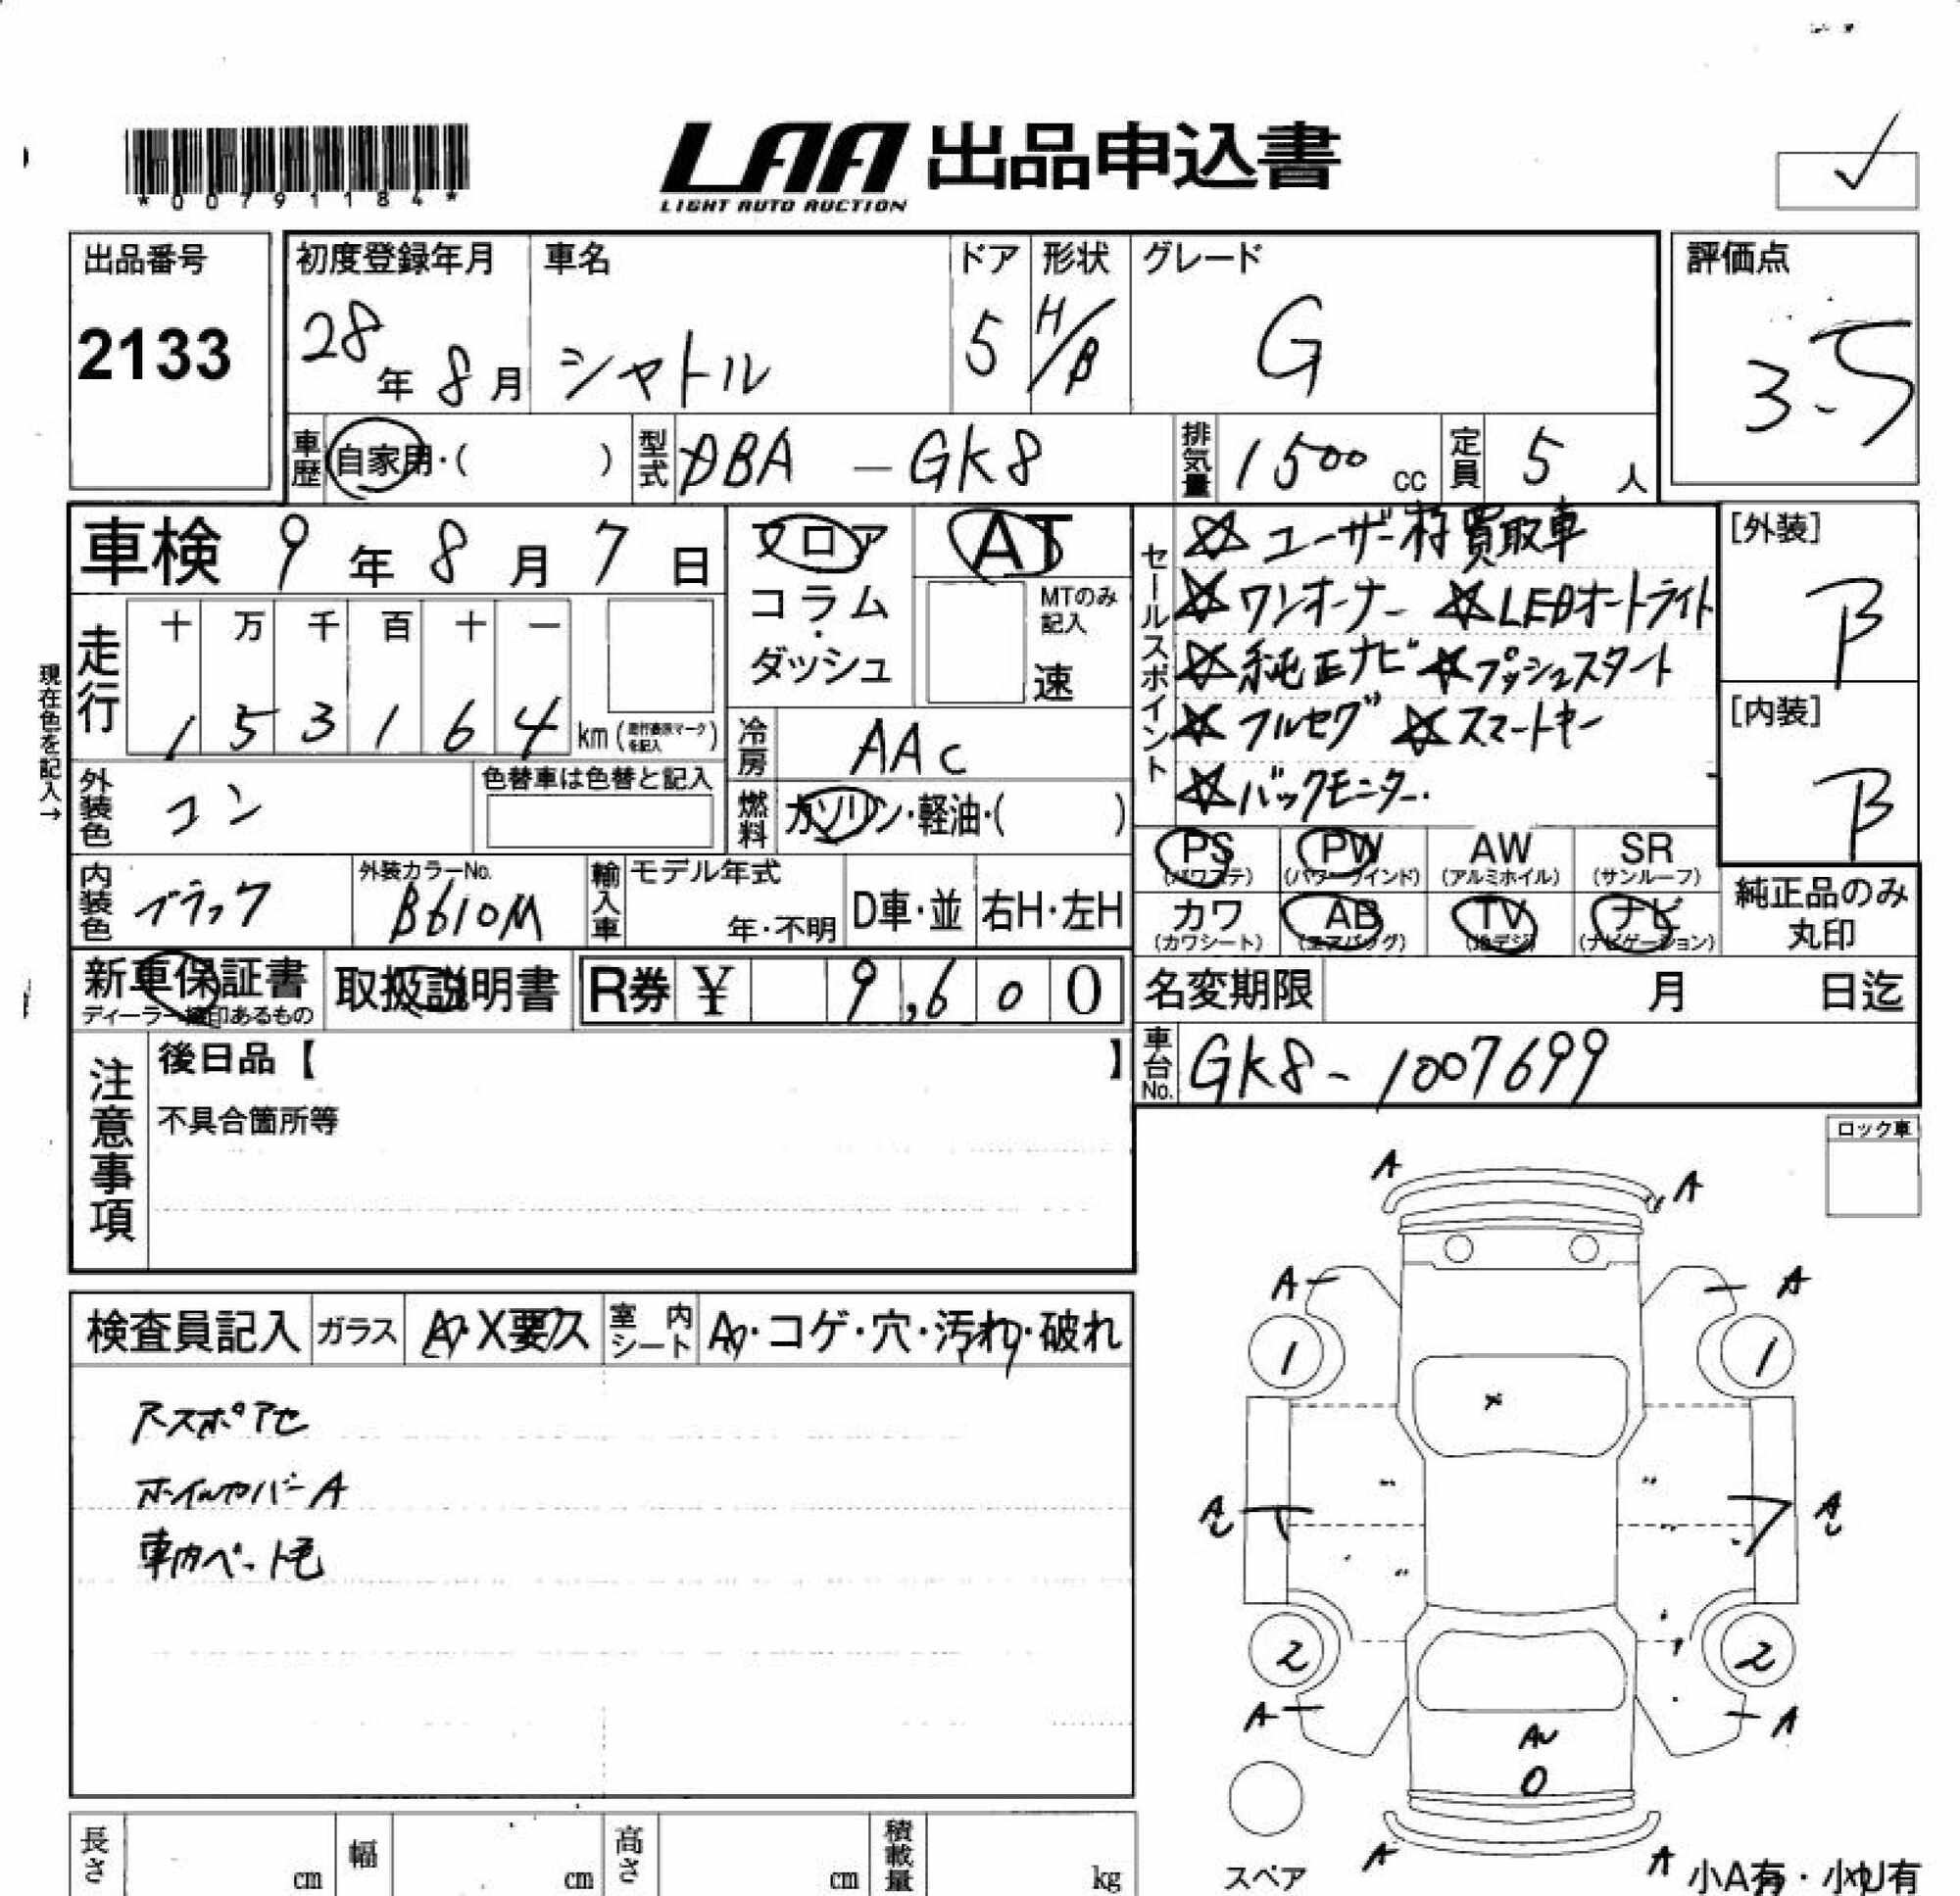 *00791184*
LAA 出品申込書
LIGHT AUTO AUCTION
出品番号
2133
初度登録年月
28年8月
車名
シャトル
ドア
5
形状
H/B
グレード
G
評価点
3.5
車歴
自家用・( )
型式
DBA-GK8
排気量
1500 cc
定員
5人
車検 9年8月7日
フロア
コラム・ダッシュ
AT
MTのみ記入
速
セールスポイント
☆ユーザー様買取車
☆ワンオーナー ☆LEDオートライト
☆純正ナビ ☆プッシュスタート
☆フルセグ ☆スマートキー
☆バックモニター.
[外装]
B
[内装]
B
現在色を記入→
走行
十 万 千 百 十 一
1 5 3 1 6 4 km
冷房
AAC
外装色
コン
色替車は色替と記入
燃料
ガソリン・軽油・( )
PS
(パワステ)
PW
(パワーウインド)
AW
(アルミホイル)
SR
(サンルーフ)
カワ
(カワシート)
AB
(エアバッグ)
TV
(地デジ)
ナビ
(ナビゲーション)
純正品のみ
丸印
内装色
ブラック
外装カラーNo.
B610M
輸入車
モデル年式
年・不明
D車・並
右H・左H
新車保証書
取扱説明書
R券 ¥ 9,600
名変期限 月 日迄
車台No.
GK8-1007699
注意事項
後日品【 】
不具合箇所等
ロック車
検査員記入
ガラス
A・X要ス
室内シート
A・コゲ・穴・汚れ・破れ
ホイルカバーA
車内ペット毛
A
A
A
A
1
1
X
A
A
2
2
A
A
O
A
A
スペア
小A有・小U有
長さ cm
幅 cm
高さ cm
積載量 kg